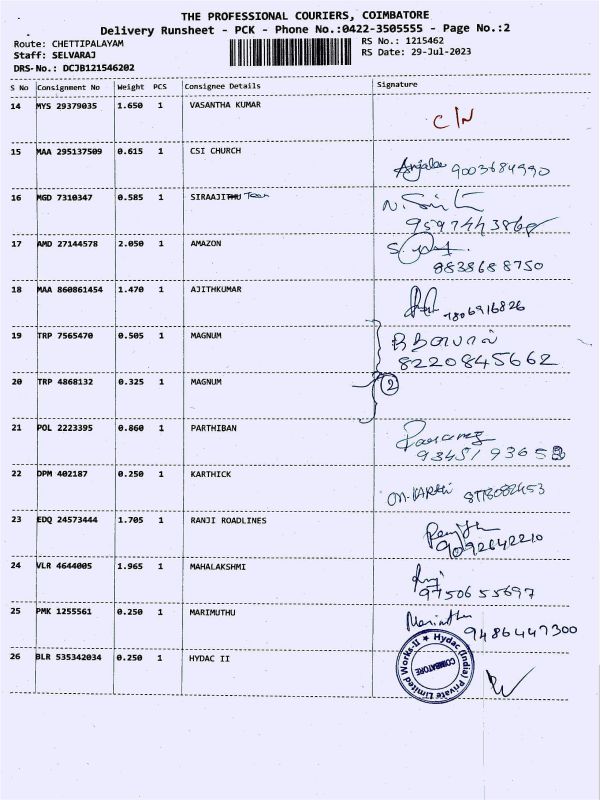 THE PROFESSIONAL COURIERS, COIMBATORE
Delivery Runsheet - PCK - Phone No.:0422-3505555 - Page No.:2
Route: CHETTIPALAYAM RS No.: 1215462
Staff: SELVARAJ RS Date: 29-Jul-2023
DRS-No.: DCJB121546202
S No Consignment No Weight PCS Consignee Details Signature
14 MYS 29379035 1.650 1 VASANTHA KUMAR
C/N
15 MAA 295137509 0.615 1 CSI CHURCH
9003684990
16 MGD 7310347 0.585 1 SIRAAJITHU Tean
17 AMD 27144578 2.050 1 AMAZON
9838688750
18 MAA 860861454 1.470 1 AJITHKUMAR
7806916826
19 TRP 7565470 0.505 1 MAGNUM
8220845662
20 TRP 4868132 0.325 1 MAGNUM
2
21 POL 2223395 0.860 1 PARTHIBAN
22 DPM 402187 0.250 1 KARTHICK
23 EDQ 24573444 1.705 1 RANJI ROADLINES
9092642210
24 VLR 4644005 1.965 1 MAHALAKSHMI
9750655697
25 PMK 1255561 0.250 1 MARIMUTHU
9486447300
26 BLR 535342034 0.250 1 HYDAC II
Hydac (India) Private Limited Works-II
COIMBATORE